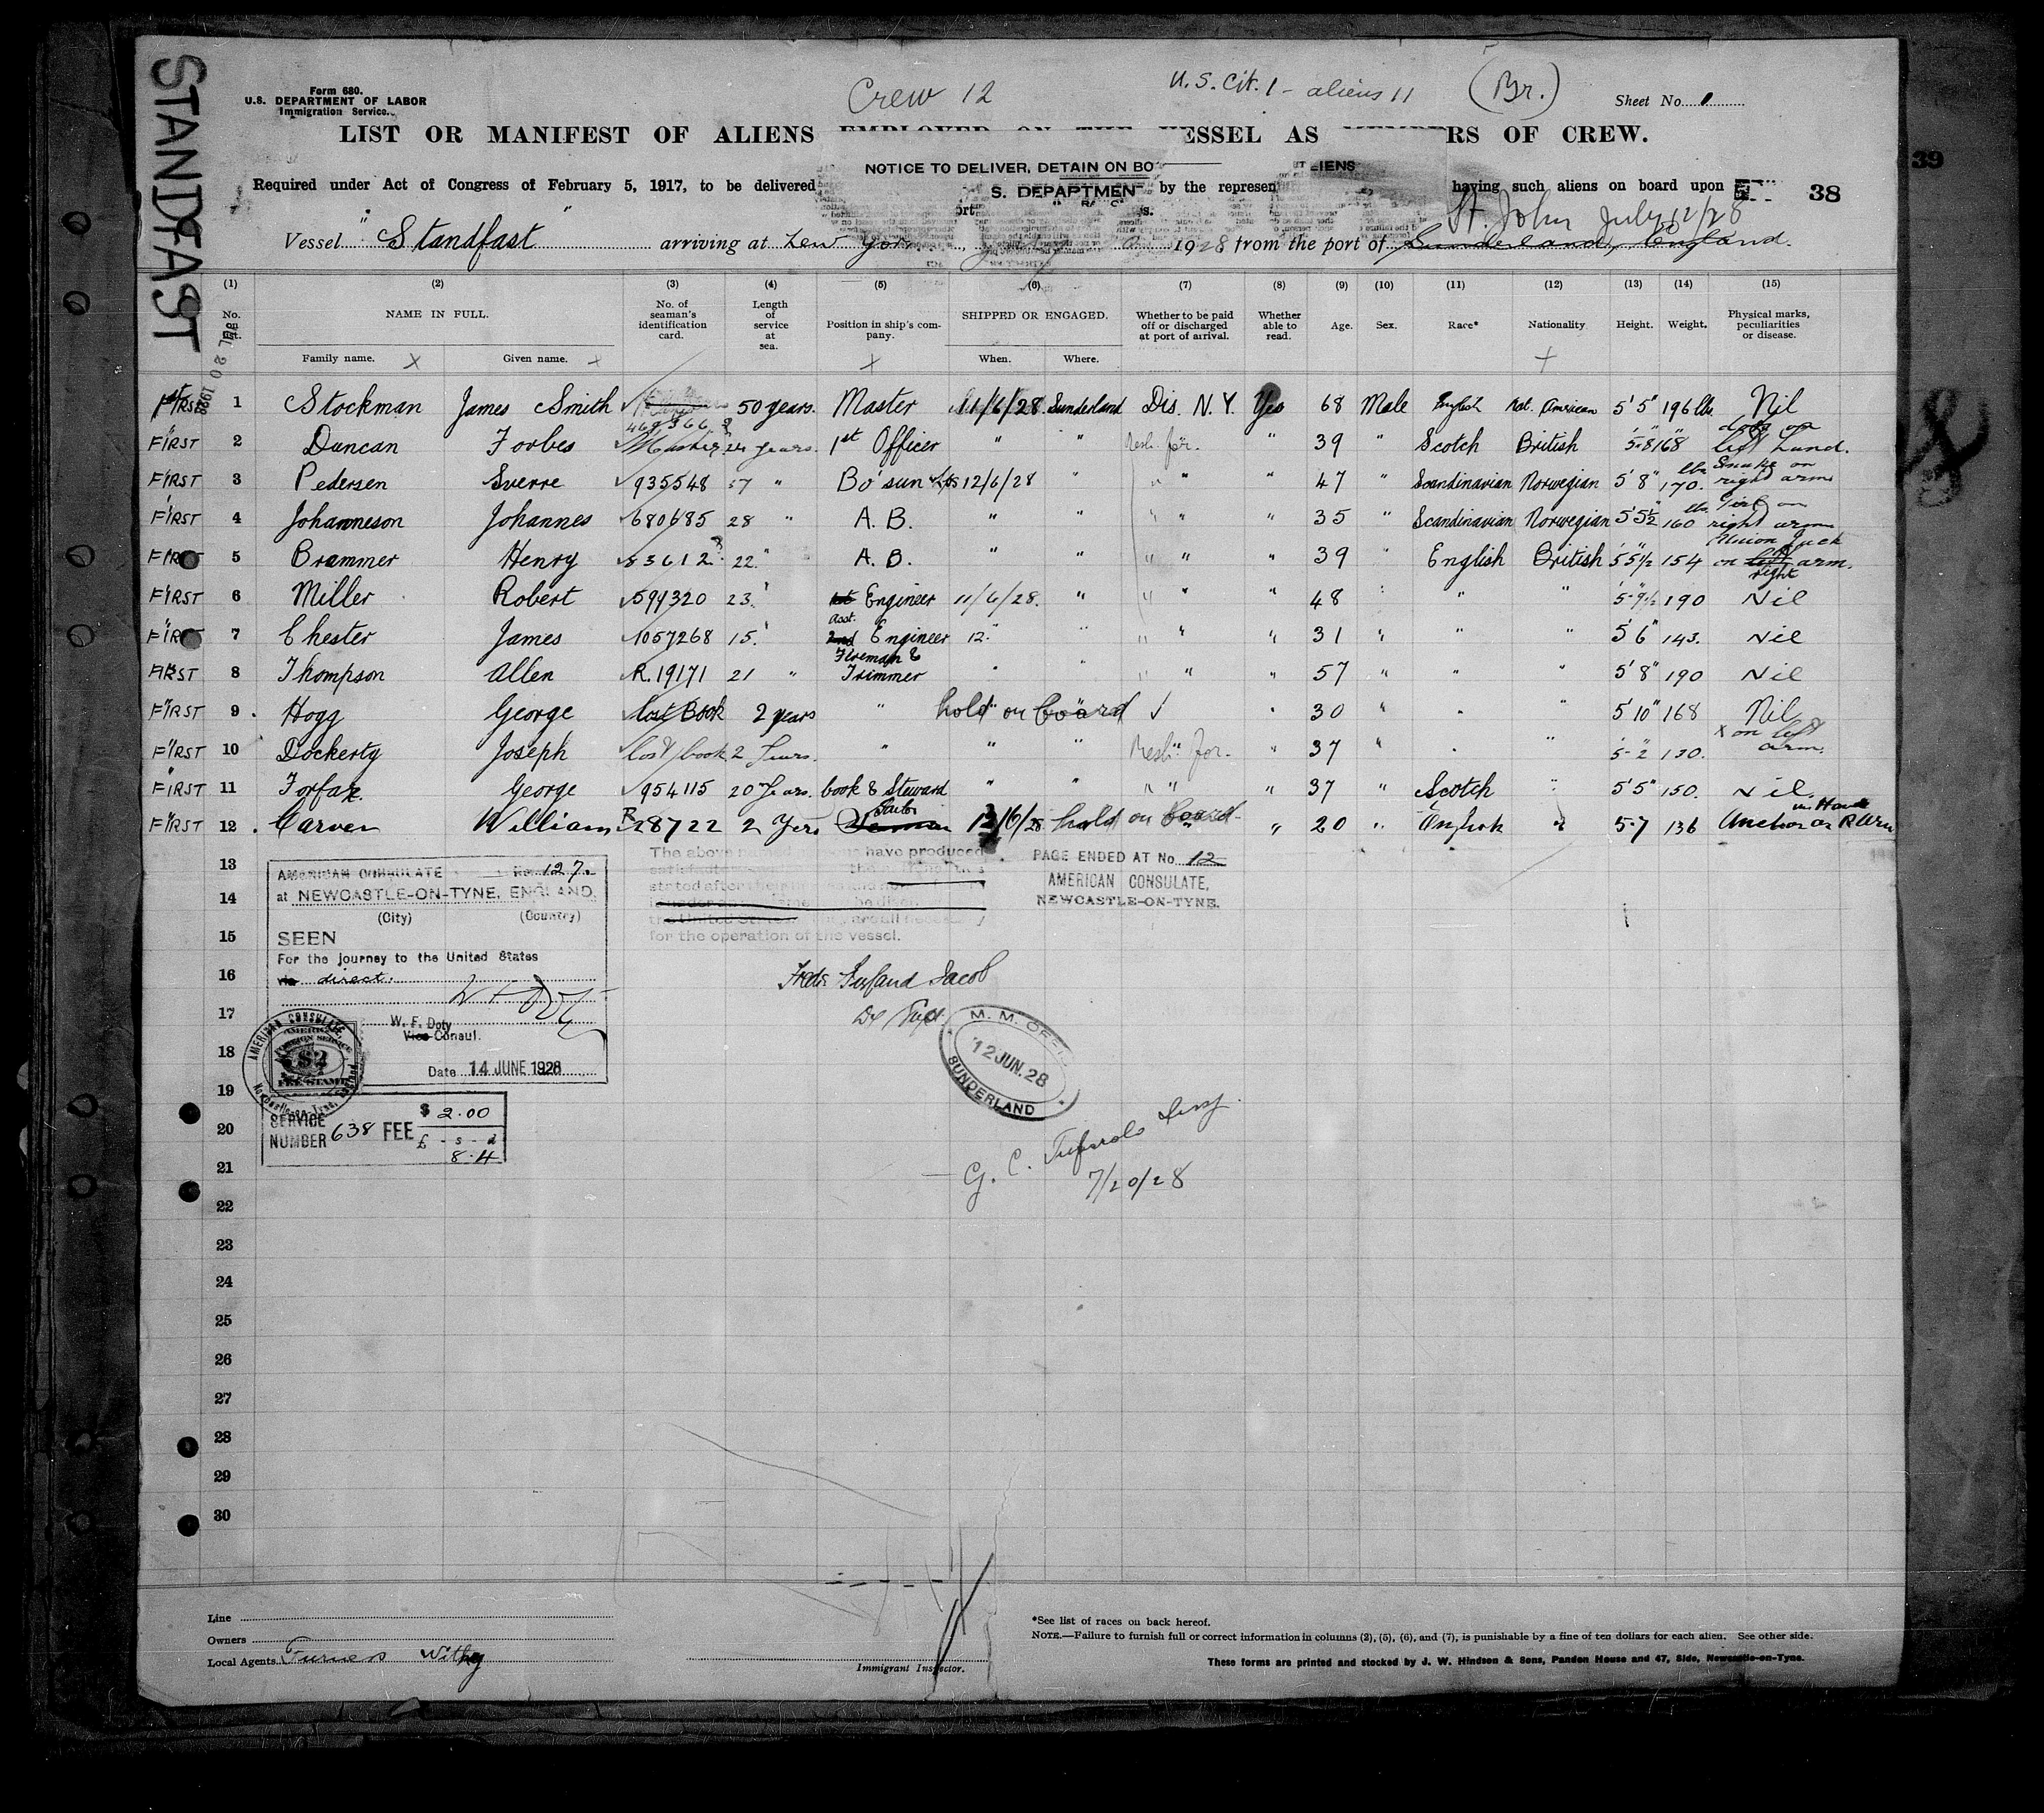 STANDFAST
Form 680.
U.S. DEPARTMENT OF LABOR
Immigration Service.
Crew 12
U.S. Cit. 1 - aliens 11
(Br.)
Sheet No. 1
LIST OR MANIFEST OF ALIENS EMPLOYED ON THE VESSEL AS MEMBERS OF CREW.
NOTICE TO DELIVER, DETAIN ON BO
LIENS
Required under Act of Congress of February 5, 1917, to be delivered
S. DEPARTMEN
by the represen
having such aliens on board upon
38
39
St. John July 12/28
Vessel "Standfast" arriving at New York 1928 from the port of Sunderland, England.
(1) (2) (3) (4) (5) (6) (7) (8) (9) (10) (11) (12) (13) (14) (15)
No. on list. NAME IN FULL. Family name. Given name. No. of seaman's identification card. Length of service at sea. Position in ship's company. SHIPPED OR ENGAGED. When. Where. Whether to be paid off or discharged at port of arrival. Whether able to read. Age. Sex. Race* Nationality Height. Weight. Physical marks, peculiarities or disease.
1 Stockman James Smith 50 years. Master 11/6/28. Sunderland Dis. N.Y. Yes 68 Male English Nat. American 5' 5" 196 lbs. Nil
FIRST 2 Duncan Forbes 1st Officer " " " 39 " Scotch British 5-8 168 left hand.
FIRST 3 Pedersen Sverre 935548 " Bo'sun 12/6/28 " " " " 47 " Scandinavian Norwegian 5' 8" 170. lbs Snake on right arm
FIRST 4 Johanneson Johannes 680685 28 " A.B. " " " " " 35 " Scandinavian Norwegian 5' 5½ 160 lbs Girl on right arm
FIRST 5 Brammer Henry 22 " A.B. " " " " " 39 " English British 5' 5½ 154 Union Jack on left right arm.
FIRST 6 Miller Robert 599320 23 " 1st Engineer 11/6/28. " " " " 48 " " " 5-9½ 190 Nil
FIRST 7 Chester James 1057268 15 " Asst. 2nd Engineer 12 " " " " " 31 " " " 5' 6" 143. Nil
FIRST 8 Thompson Allen R.19171 21 " Fireman & Trimmer " " " " " 57 " " " 5' 8" 190 Nil
FIRST 9 Hogg George lost Book 2 years " hold on board " 30 " " " 5' 10" 168 Nil
FIRST 10 Dockerty Joseph lost book 2 years. " " " " 37 " " " 5-2 130. x on left arm.
FIRST 11 Forfar George 954115 20 years. Cook & Steward " " " " " 37 " Scotch " 5' 5" 150. Nil.
FIRST 12 Carver William R28722 2 Yers Sailor 13/6/28 hold on board " 20 " English " 5-7 136 Anchor on R Arm
13
14
15
16
17
18
19
20
21
22
23
24
25
26
27
28
29
30
AMERICAN CONSULATE No. 127.
at NEWCASTLE-ON-TYNE, ENGLAND.
(City) (Country)
SEEN
For the journey to the United States
via direct.
W. F. Doty
Vice Consul.
Date 14 JUNE 1928
AMERICAN CONSULATE
AMERICAN
FOREIGN SERVICE
$2
FEE STAMP
SERVICE NUMBER 638 FEE $ 2.00
£ - s - d
8.4
The above have produced
for the operation of the vessel.
PAGE ENDED AT No. 12
AMERICAN CONSULATE,
NEWCASTLE-ON-TYNE.
M. M. OFFICE
12 JUN. 28
SUNDERLAND
7/20/28
Line
Owners
Local Agents Furness Withy
Immigrant Inspector.
*See list of races on back hereof.
NOTE.—Failure to furnish full or correct information in columns (2), (5), (6), and (7), is punishable by a fine of ten dollars for each alien. See other side.
These forms are printed and stocked by J. W. Hindson & Sons, Pandon House and 47, Side, Newcastle-on-Tyne.